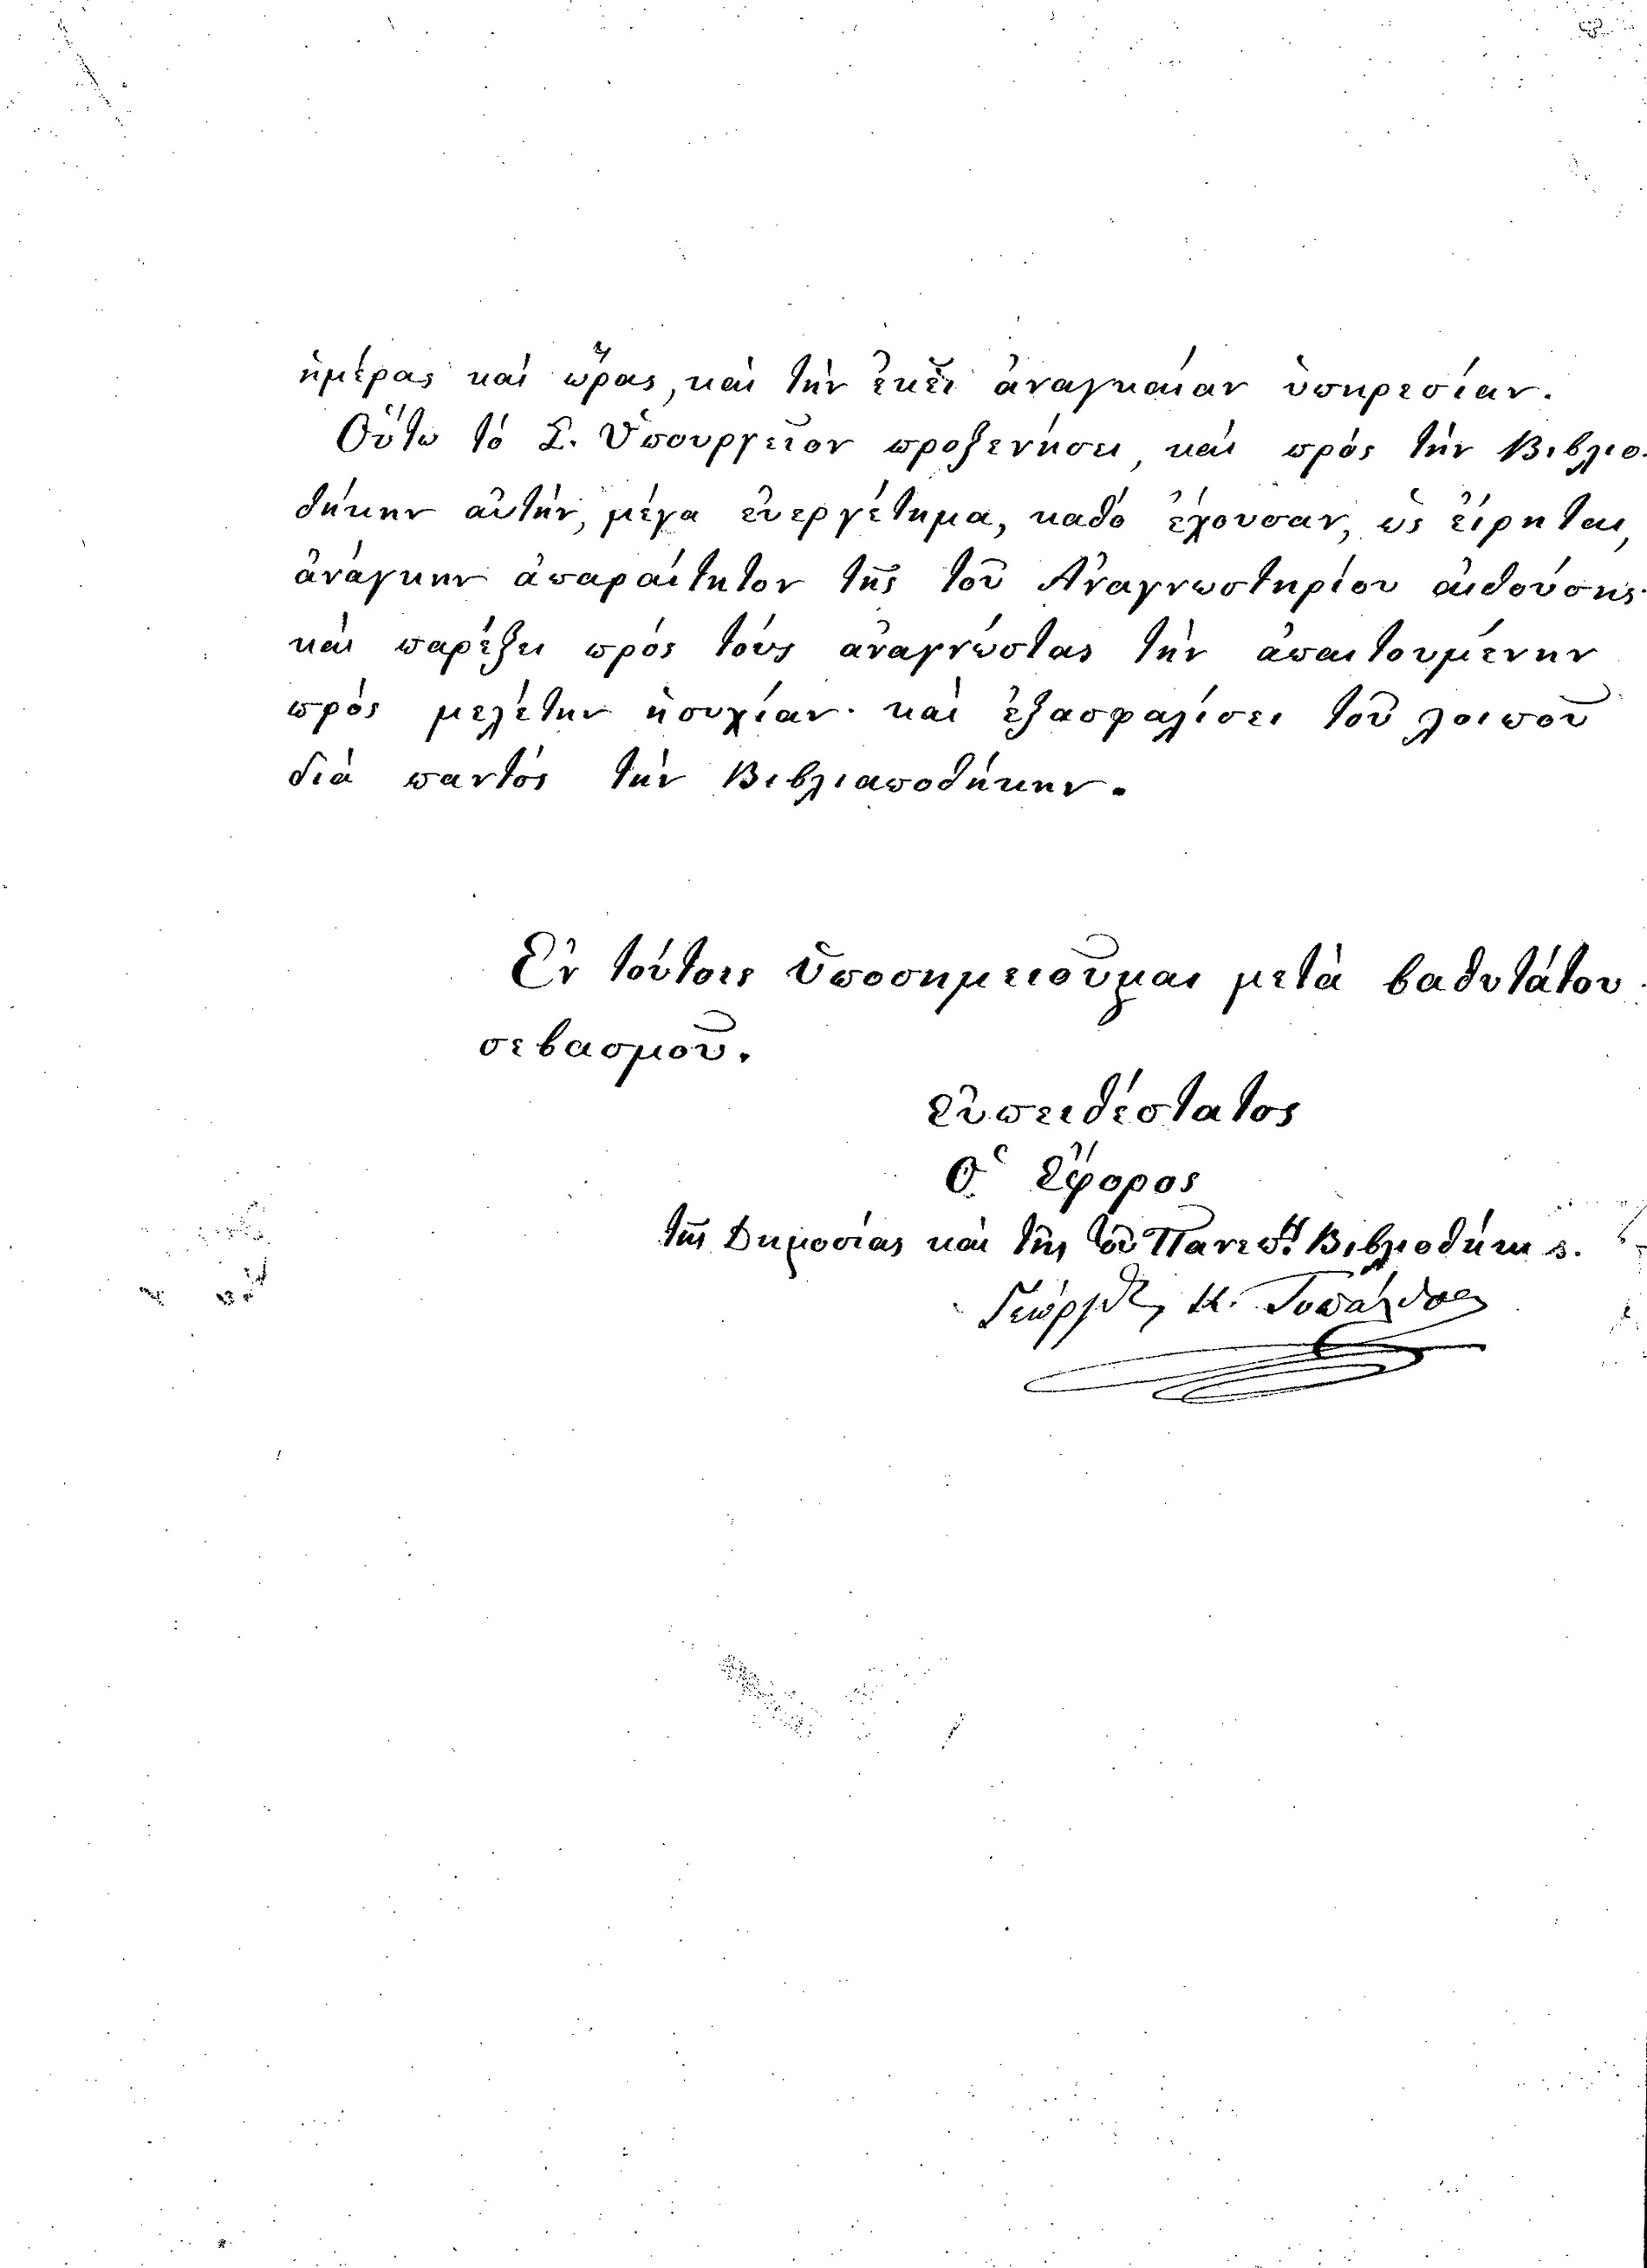 ἡμέρας καὶ ὥρας, καὶ τὴν ἐκεῖ ἀναγκαίαν ὑπηρεσίαν.
Οὕτω τὸ Σ. Ὑπουργεῖον προξενήσει, καὶ πρὸς τὴν Βιβλιο-
θήκην αὐτήν, μέγα εὐεργέτημα, καθὸ ἔχουσαν, ὡς εἴρηται,
ἀνάγκην ἀπαραίτητον τῆς τοῦ Ἀναγνωστηρίου αἰθούσης·
καὶ παρέξει πρὸς τοὺς ἀναγνώστας τὴν ἀπαιτουμένην
πρὸς μελέτην ἡσυχίαν· καὶ ἐξασφαλίσει τοῦ λοιποῦ
διὰ παντὸς τὴν Βιβλιαποθήκην.
Ἐν τούτοις ὑποσημειοῦμαι μετὰ βαθυτάτου
σεβασμοῦ.
εὐπειθέστατος
Ὁ Ἔφορος
τῆς Δημοσίας καὶ τῆς τοῦ Πανεπ. Βιβλιοθήκης.
Γεώργιος Κ. Τυπάλδος